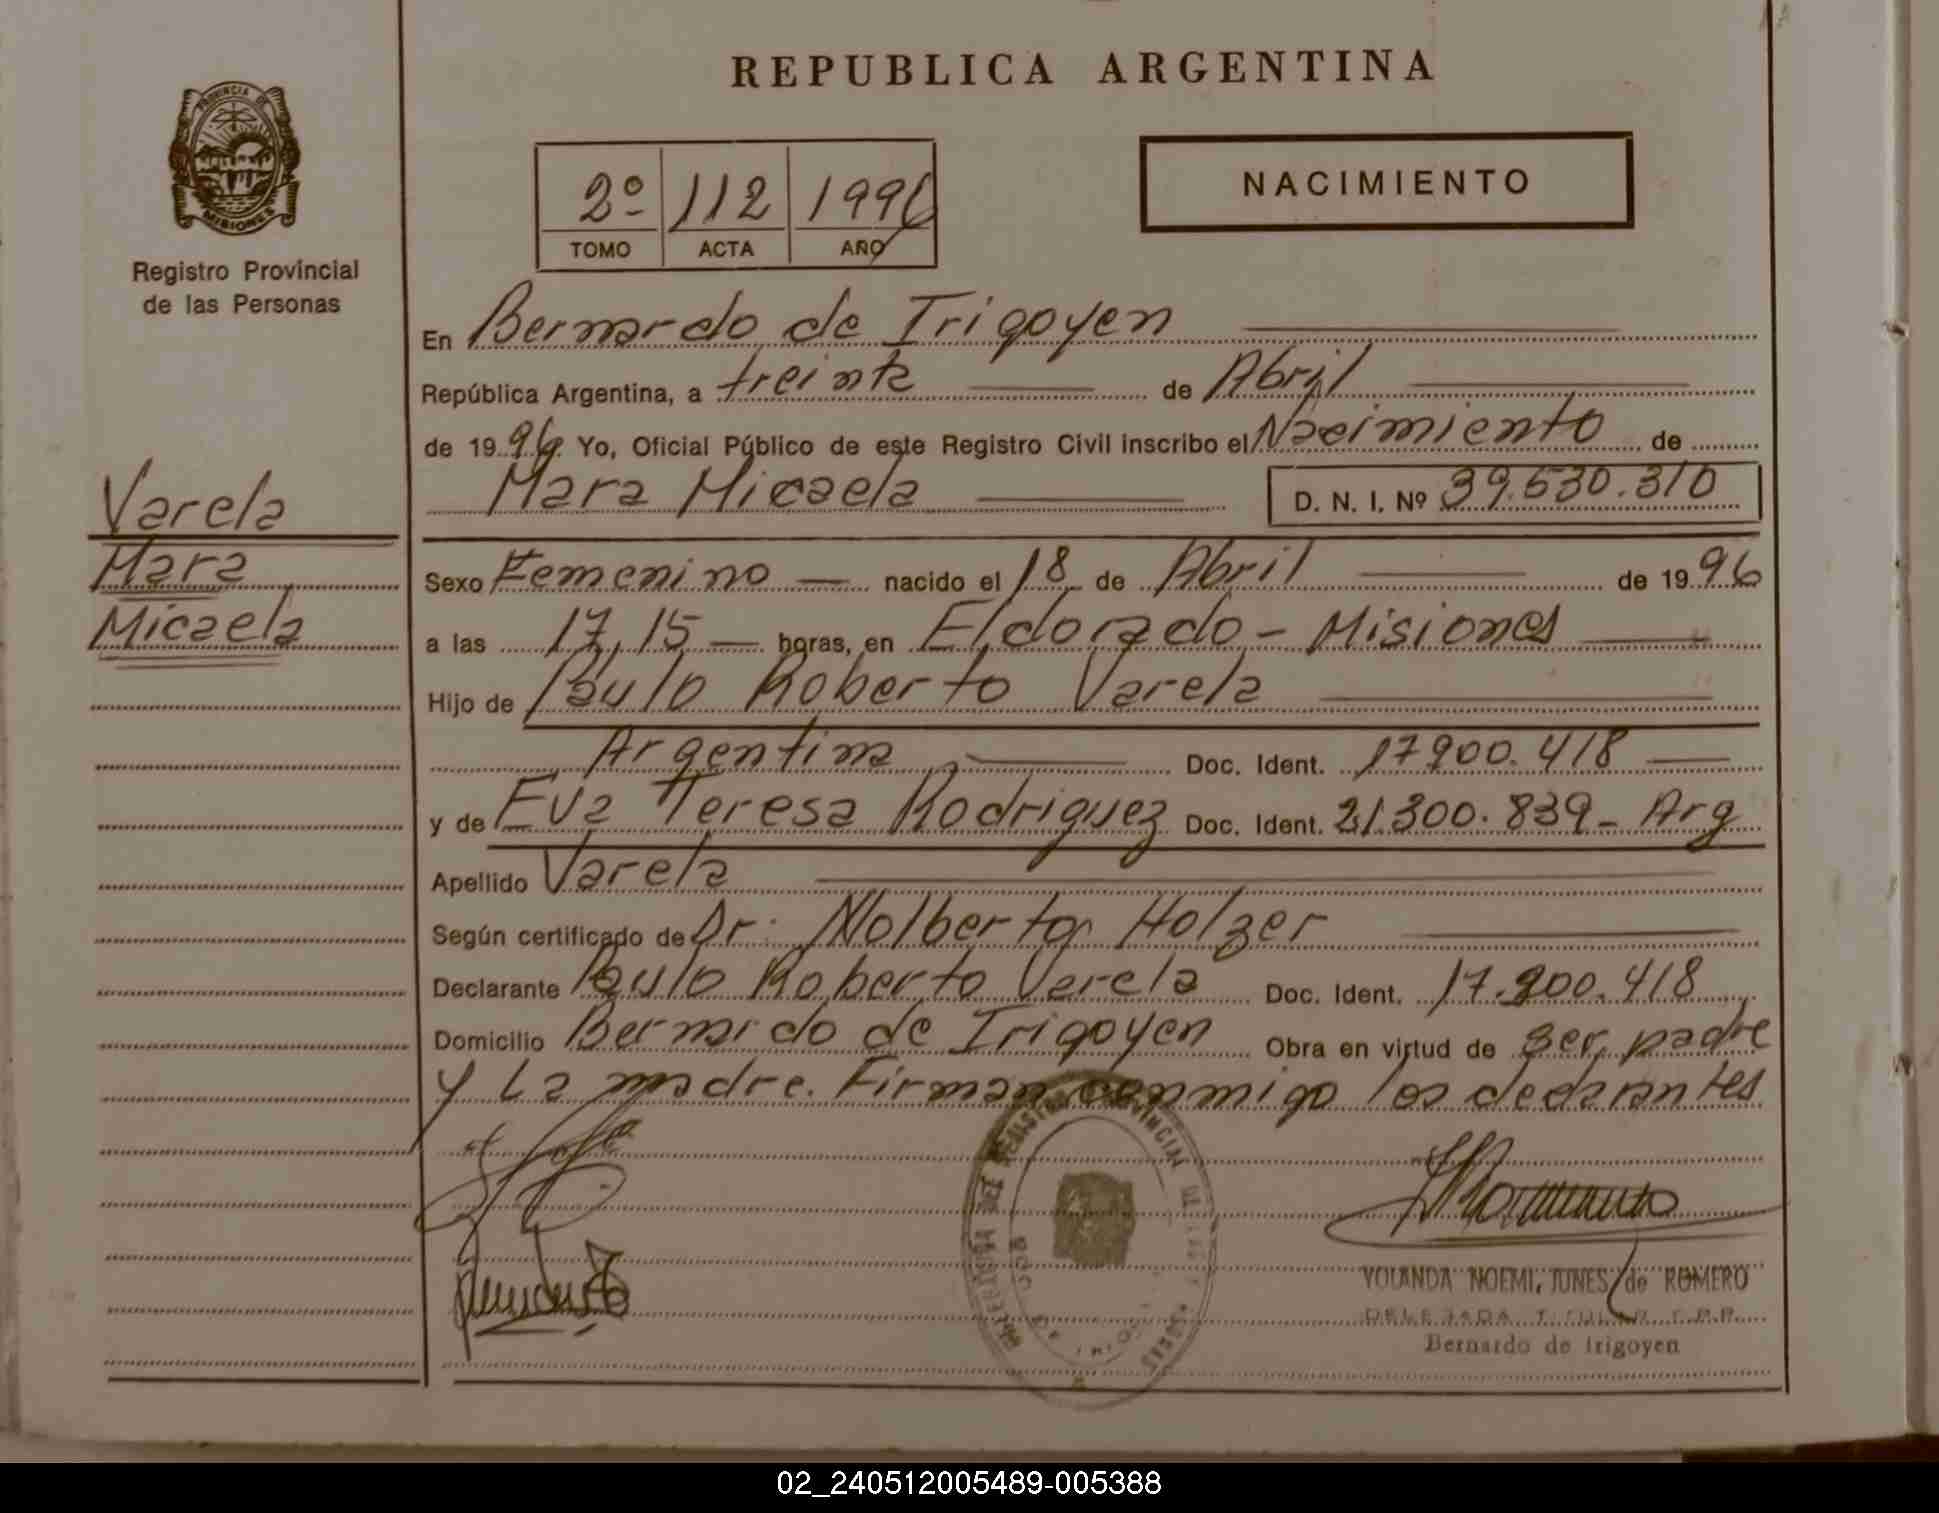 REPUBLICA ARGENTINA
PROVINCIA DE
MISIONES
Registro Provincial
de las Personas
2º 112 1996
TOMO ACTA AÑO
NACIMIENTO
En Bernardo de Irigoyen
República Argentina, a treinta de Abril
de 1996 Yo, Oficial Público de este Registro Civil inscribo el Nacimiento de
Mara Micaela D. N. I. Nº 39.530.310
Varela
Mara
Micaela
Sexo Femenino nacido el 18 de Abril de 1996
a las 17,15 horas, en Eldorado - Misiones
Hijo de Paulo Roberto Varela
Argentina Doc. Ident. 17900.418
y de Eva Teresa Rodriguez Doc. Ident. 21.300.839 - Arg
Apellido Varela
Según certificado de Dr. Nolberto Holzer
Declarante Paulo Roberto Varela Doc. Ident. 17.900.418
Domicilio Bernardo de Irigoyen Obra en virtud de ser padre
y La madre. Firman conmigo los declarantes
YOLANDA NOEMI JUNES de ROMERO
DELEGADA TITULAR R.P.P.
Bernardo de Irigoyen
02_240512005489-005388